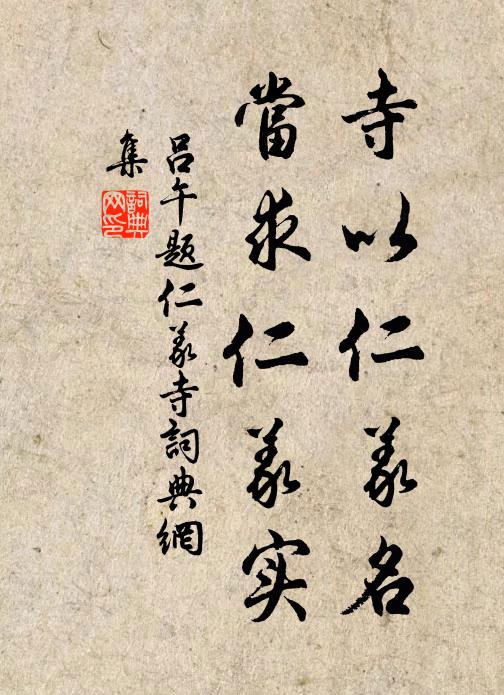 寺以仁義名
當求仁義实
吕午题仁義寺詞典網
集
詞典
网印